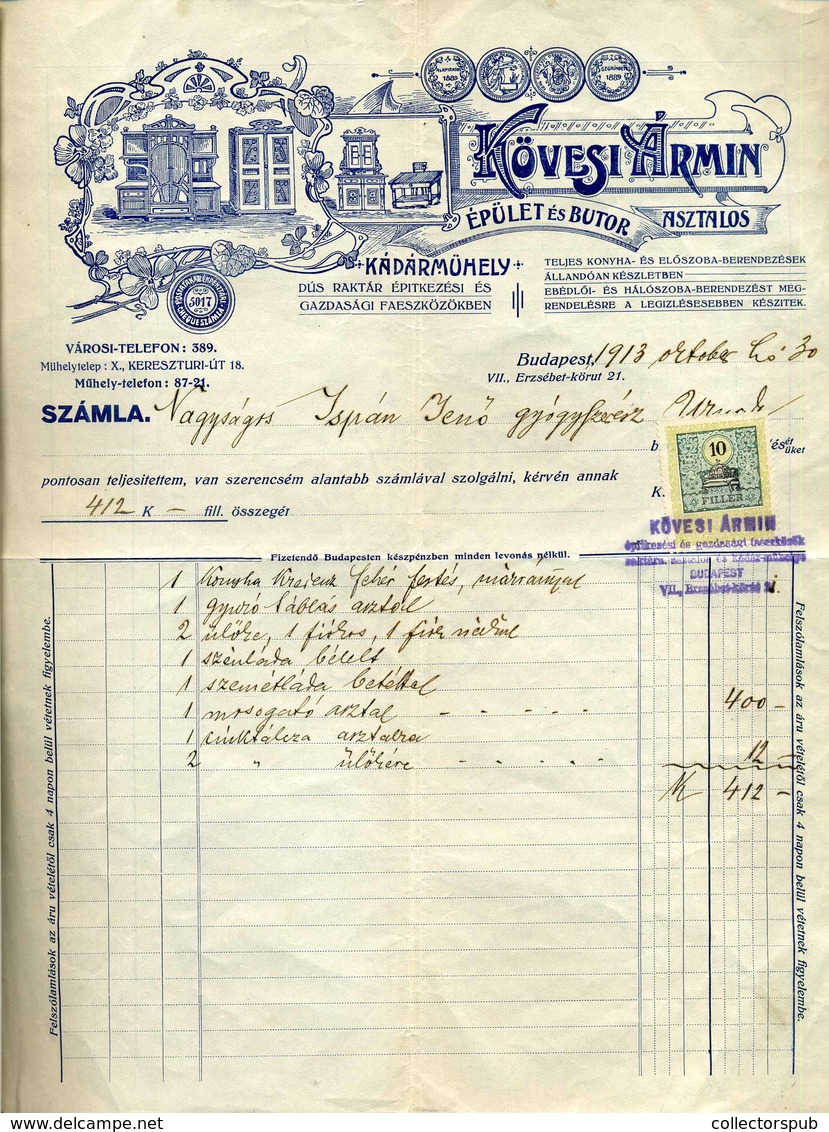 ALAPITTATOTT 1889
GEGRÜNDET 1889
KÖVESI ÁRMIN
ÉPÜLET ÉS BUTOR ASZTALOS
KÁDÁRMŰHELY
DÚS RAKTÁR ÉPITKEZÉSI ÉS
GAZDASÁGI FAESZKÖZÖKBEN
TELJES KONYHA- ÉS ELŐSZOBA-BERENDEZÉSEK
ÁLLANDÓAN KÉSZLETBEN
EBÉDLŐI- ÉS HÁLÓSZOBA-BERENDEZÉST MEG-
RENDELÉSRE A LEGIZLÉSESEBBEN KÉSZITEK.
5017
CHEQUESZÁMLA
VÁROSI-TELEFON: 389.
Műhelytelep: X., KERESZTURI-ÚT 18.
Műhely-telefon: 87-21.
Budapest, 1913 október hó 30
VII., Erzsébet-körut 21.
SZÁMLA. Nagyságos Ispán Jenő gyógyszerész Urnak
b és ét üket
pontosan teljesitettem, van szerencsém alantabb számlával szolgálni, kérvén annak K.
412 K — fill. összegét
10
FILLÉR
KÖVESI ÁRMIN
épitkezési és gazdasági faeszközök
BUDAPEST
VII., Erzsébet-körut 21.
Fizetendő Budapesten készpénzben minden levonás nélkül.
1 Konyha Kredenz fehér festés, márvánnyal
1 gyuró táblás asztal
2 ülőke, 1 fiókos, 1 fiók nélkül
1 szénláda bélelt
1 szemétláda betéttel
1 mosogató asztal - - - - - 400 —
1 cinktálcza asztalra
2 " ülőkére - - - - - 12 —
K 412 —
Felszólamlások az áru vételétől csak 4 napon belül vétetnek figyelembe.
Felszólamlások az áru vételétől csak 4 napon belül vétetnek figyelembe.
collectorspub
www.delcampe.net